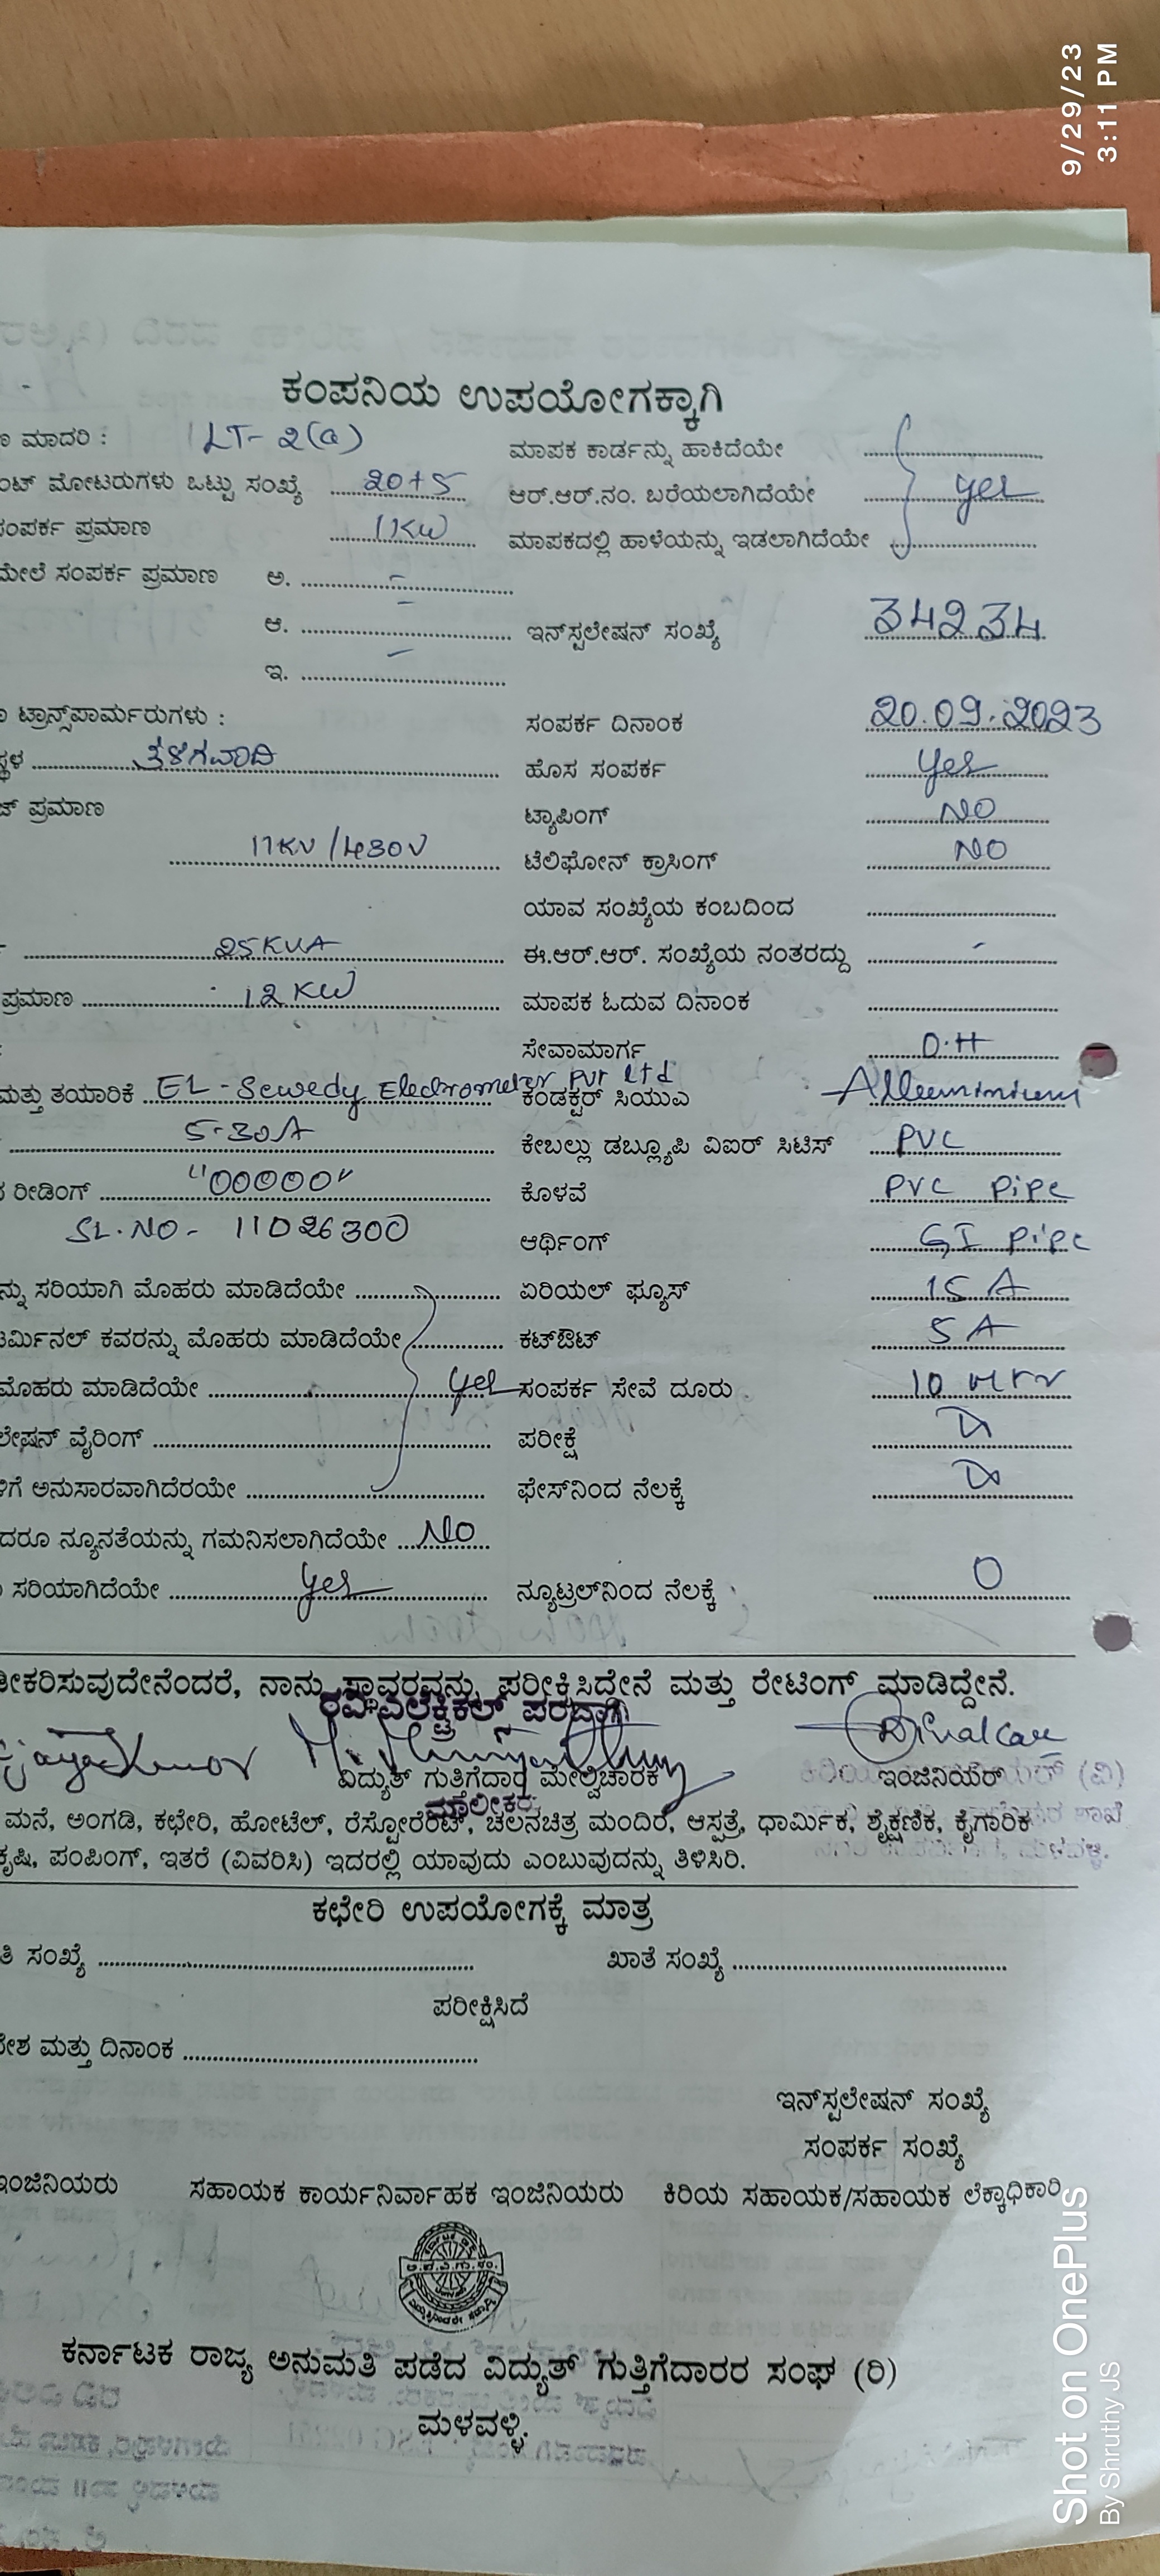 9/29/23
3:11 PM
ಕಂಪನಿಯ ಉಪಯೋಗಕ್ಕಾಗಿ
ಮಾದರಿ : LT- 2(a) ಮಾಪಕ ಕಾರ್ಡನ್ನು ಹಾಕಿದೆಯೇ
ಂಟ್ ಮೋಟರುಗಳು ಒಟ್ಟು ಸಂಖ್ಯೆ 20+5 ಆರ್.ಆರ್.ನಂ. ಬರೆಯಲಾಗಿದೆಯೇ yes
ಸಂಪರ್ಕ ಪ್ರಮಾಣ 1KW ಮಾಪಕದಲ್ಲಿ ಹಾಳೆಯನ್ನು ಇಡಲಾಗಿದೆಯೇ
ಮೇಲೆ ಸಂಪರ್ಕ ಪ್ರಮಾಣ ಅ. -
ಆ. - ಇನ್‌ಸ್ಟಲೇಷನ್ ಸಂಖ್ಯೆ 34234
ಇ. -
ಟ್ರಾನ್ಸ್‌ಪಾರ್ಮರುಗಳು : ಸಂಪರ್ಕ ದಿನಾಂಕ 20.09.2023
ಸ್ಥಳ ತಳಗವಾದಿ ಹೊಸ ಸಂಪರ್ಕ yes
ಜ್ ಪ್ರಮಾಣ ಟ್ಯಾಪಿಂಗ್ NO
11KV/430V ಟೆಲಿಫೋನ್ ಕ್ರಾಸಿಂಗ್ NO
ಯಾವ ಸಂಖ್ಯೆಯ ಕಂಬದಿಂದ
25KVA ಈ.ಆರ್.ಆರ್. ಸಂಖ್ಯೆಯ ನಂತರದ್ದು -
ಪ್ರಮಾಣ 12KW ಮಾಪಕ ಓದುವ ದಿನಾಂಕ
ಸೇವಾಮಾರ್ಗ O.H
ಮತ್ತು ತಯಾರಿಕೆ EL-Sewedy Electrometer pvt ltd ಕಂಡಕ್ಟರ್ ಸಿಯುಎ Alleuminium
5-30A ಕೇಬಲ್ಲು ಡಬ್ಲ್ಯೂಪಿ ವಿಐರ್ ಸಿಟಿಸ್ PVC
ರೀಡಿಂಗ್ "00000" ಕೊಳವೆ PVC pipe
SL.NO- 11026300 ಆರ್ಥಿಂಗ್ GI pipe
ನ್ನು ಸರಿಯಾಗಿ ಮೊಹರು ಮಾಡಿದೆಯೇ ಏರಿಯಲ್ ಫ್ಯೂಸ್ 15 A
ಟರ್ಮಿನಲ್ ಕವರನ್ನು ಮೊಹರು ಮಾಡಿದೆಯೇ ಕಟ್‌ಔಟ್ 5 A
ಮೊಹರು ಮಾಡಿದೆಯೇ yes ಸಂಪರ್ಕ ಸೇವೆ ದೂರು 10
ಲೇಷನ್ ವೈರಿಂಗ್ ಪರೀಕ್ಷೆ
ಳಿಗೆ ಅನುಸಾರವಾಗಿದೆರಯೇ ಫೇಸ್‌ನಿಂದ ನೆಲಕ್ಕೆ
ದರೂ ನ್ಯೂನತೆಯನ್ನು ಗಮನಿಸಲಾಗಿದೆಯೇ NO
ಸರಿಯಾಗಿದೆಯೇ yes ನ್ಯೂಟ್ರಲ್‌ನಿಂದ ನೆಲಕ್ಕೆ 0
ೀಕರಿಸುವುದೇನೆಂದರೆ, ನಾನು ಸ್ಥಾವರವನ್ನು ಪರೀಕ್ಷಿಸಿದ್ದೇನೆ ಮತ್ತು ರೇಟಿಂಗ್ ಮಾಡಿದ್ದೇನೆ.
ರವಿ ಎಲೆಕ್ಟ್ರಿಕಲ್ಸ್ ಪರವಾಗಿ
ವಿದ್ಯುತ್ ಗುತ್ತಿಗೆದಾರ ಮೇಲ್ವಿಚಾರಕ ಇಂಜಿನಿಯರ್
ಮಾಲೀಕರು
ಮನೆ, ಅಂಗಡಿ, ಕಛೇರಿ, ಹೋಟೆಲ್, ರೆಸ್ಟೋರೆಂಟ್, ಚಲನಚಿತ್ರ ಮಂದಿರ, ಆಸ್ಪತ್ರೆ, ಧಾರ್ಮಿಕ, ಶೈಕ್ಷಣಿಕ, ಕೈಗಾರಿಕ
ಕೃಷಿ, ಪಂಪಿಂಗ್, ಇತರೆ (ವಿವರಿಸಿ) ಇದರಲ್ಲಿ ಯಾವುದು ಎಂಬುವುದನ್ನು ತಿಳಿಸಿರಿ.
ಕಛೇರಿ ಉಪಯೋಗಕ್ಕೆ ಮಾತ್ರ
ತಿ ಸಂಖ್ಯೆ ಖಾತೆ ಸಂಖ್ಯೆ
ಪರೀಕ್ಷಿಸಿದೆ
ೇಶ ಮತ್ತು ದಿನಾಂಕ
ಇನ್‌ಸ್ಟಲೇಷನ್ ಸಂಖ್ಯೆ
ಸಂಪರ್ಕ ಸಂಖ್ಯೆ
ಇಂಜಿನಿಯರು ಸಹಾಯಕ ಕಾರ್ಯನಿರ್ವಾಹಕ ಇಂಜಿನಿಯರು ಕಿರಿಯ ಸಹಾಯಕ/ಸಹಾಯಕ ಲೆಕ್ಕಾಧಿಕಾರಿ
ಕರ್ನಾಟಕ ರಾಜ್ಯ ಅನುಮತಿ ಪಡೆದ ವಿದ್ಯುತ್ ಗುತ್ತಿಗೆದಾರರ ಸಂಘ (ರಿ)
ಮಳವಳ್ಳಿ.
Shot on OnePlus
By Shruthy JS